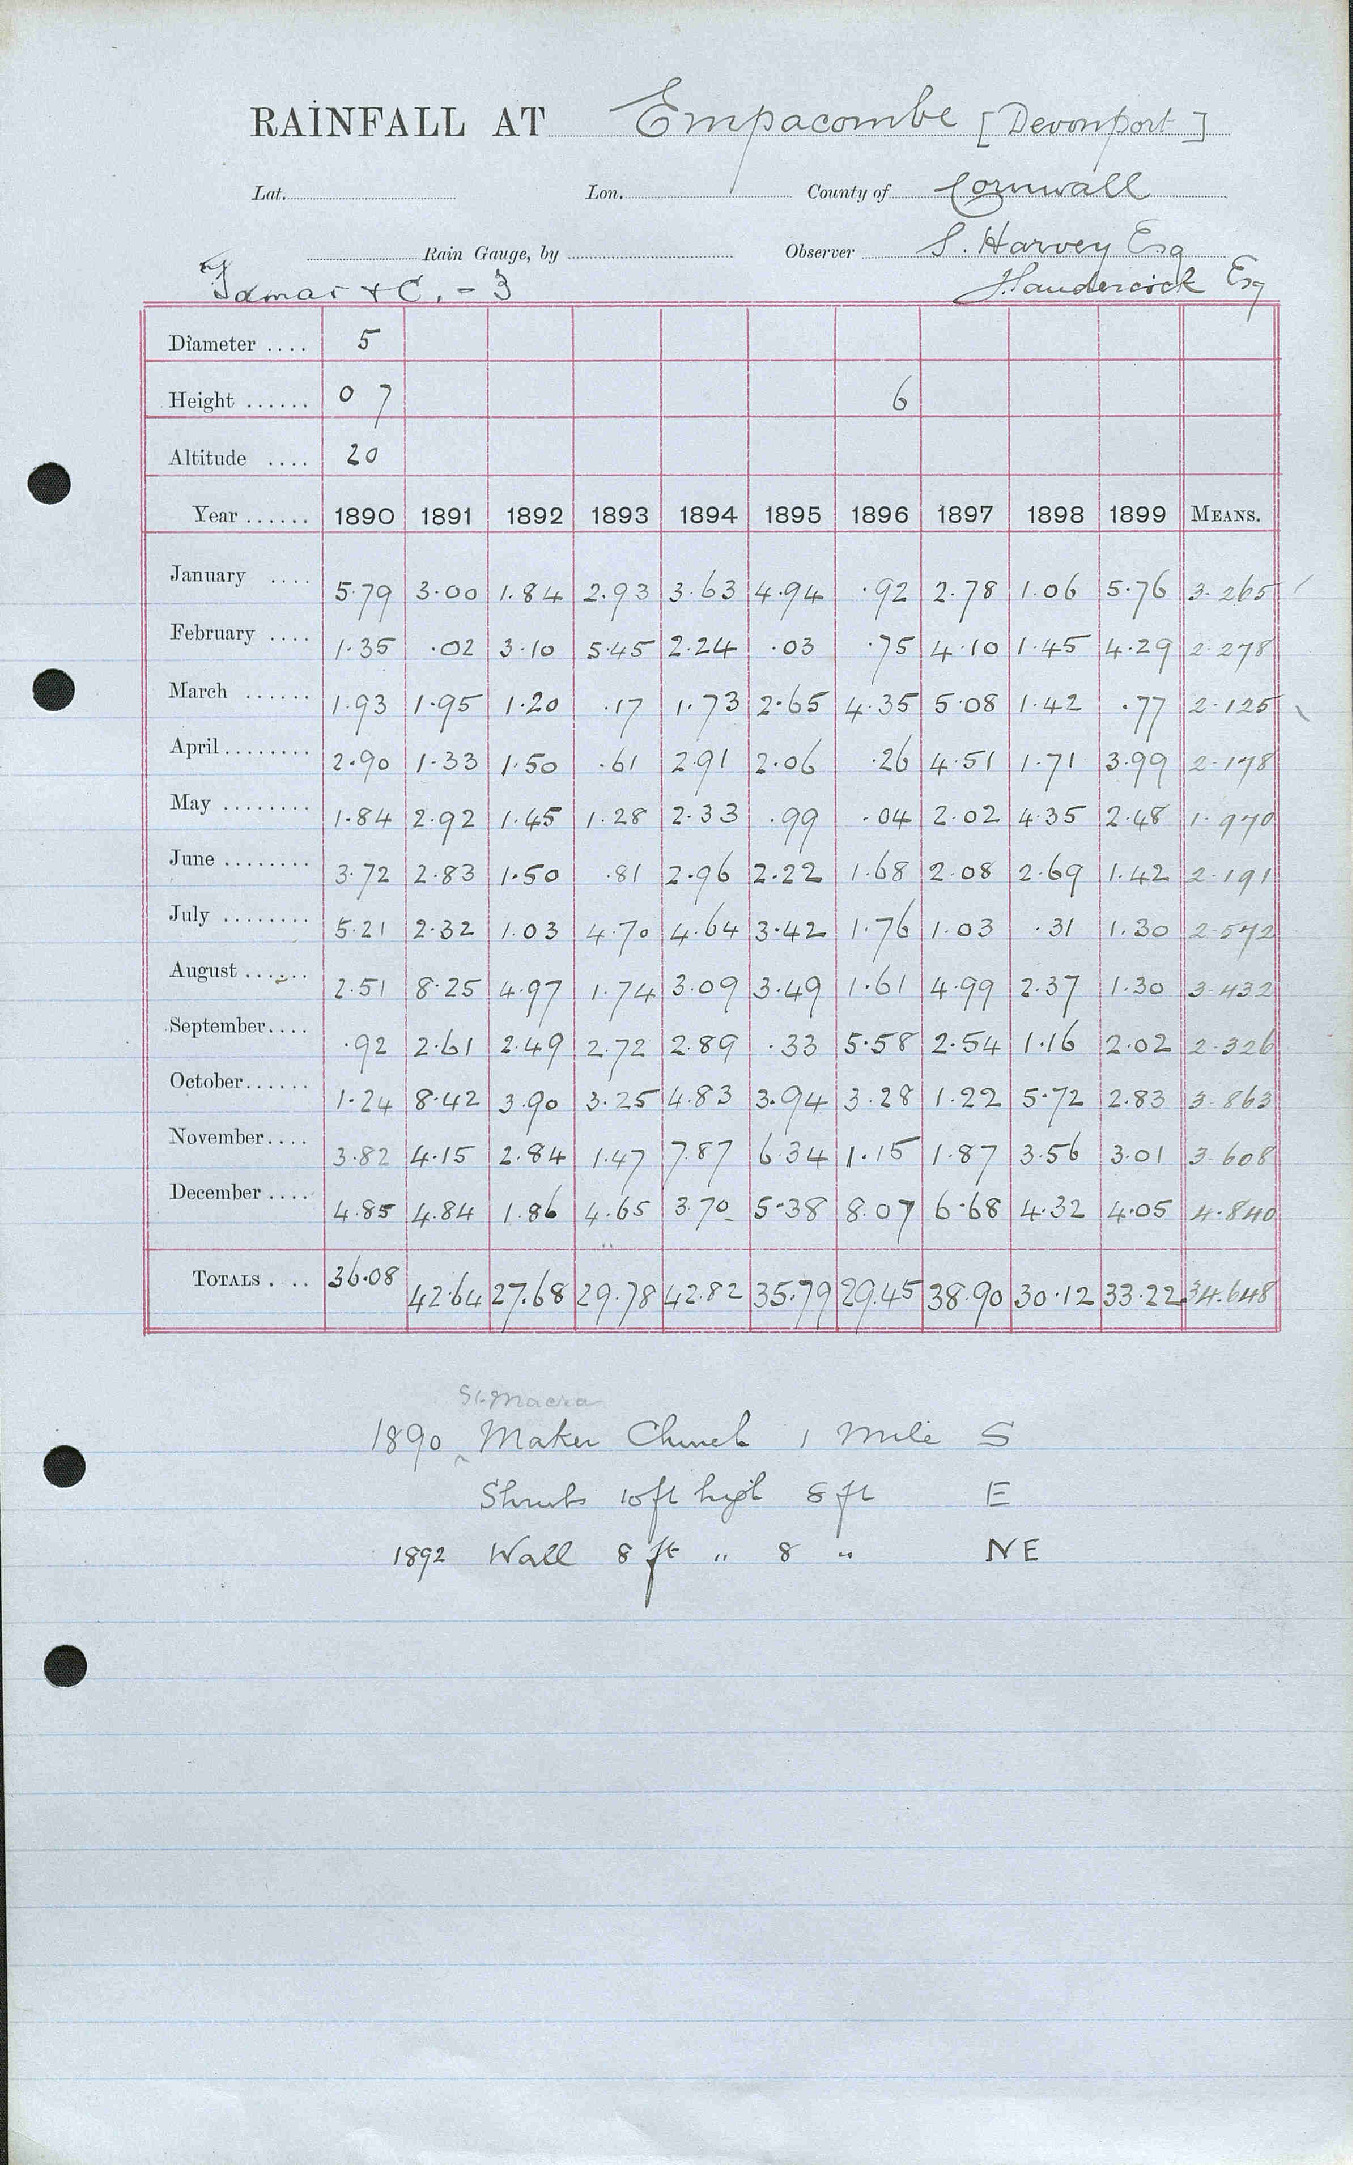 RAINFALL AT Empacombe [Devonport]
Lat. Lon. County of Cornwall
Rain Gauge, by Observer S. Harvey Esq
Tamar & C. - 3 Esq
Diameter .... 5
Height ...... 0 7 6
Altitude .... 20
Year ...... 1890 1891 1892 1893 1894 1895 1896 1897 1898 1899 MEANS.
January .... 5.79 3.00 1.84 2.93 3.63 4.94 .92 2.78 1.06 5.76 3.265
February .... 1.35 .02 3.10 5.45 2.24 .03 .75 4.10 1.45 4.29 2.278
March ...... 1.93 1.95 1.20 .17 1.73 2.65 4.35 5.08 1.42 .77 2.125
April ........ 2.90 1.33 1.50 .61 2.91 2.06 .26 4.51 1.71 3.99 2.178
May ........ 1.84 2.92 1.45 1.28 2.33 .99 .04 2.02 4.35 2.48 1.970
June ........ 3.72 2.83 1.50 .81 2.96 2.22 1.68 2.08 2.69 1.42 2.191
July ........ 5.21 2.32 1.03 4.70 4.64 3.42 1.76 1.03 .31 1.30 2.572
August ...... 2.51 8.25 4.97 1.74 3.09 3.49 1.61 4.99 2.37 1.30 3.432
September .... .92 2.61 2.49 2.72 2.89 .33 5.58 2.54 1.16 2.02 2.326
October ...... 1.24 8.42 3.90 3.25 4.83 3.94 3.28 1.22 5.72 2.83 3.863
November .... 3.82 4.15 2.84 1.47 7.87 6.34 1.15 1.87 3.56 3.01 3.608
December .... 4.85 4.84 1.86 4.65 3.70 5.38 8.07 6.68 4.32 4.05 4.840
TOTALS . .. 36.08 42.64 27.68 29.78 42.82 35.79 29.45 38.90 30.12 33.22 34.648
1890 Maker Church 1 mile S
Shrubs 10ft high 8 ft E
1892 Wall 8 ft " 8 " NE